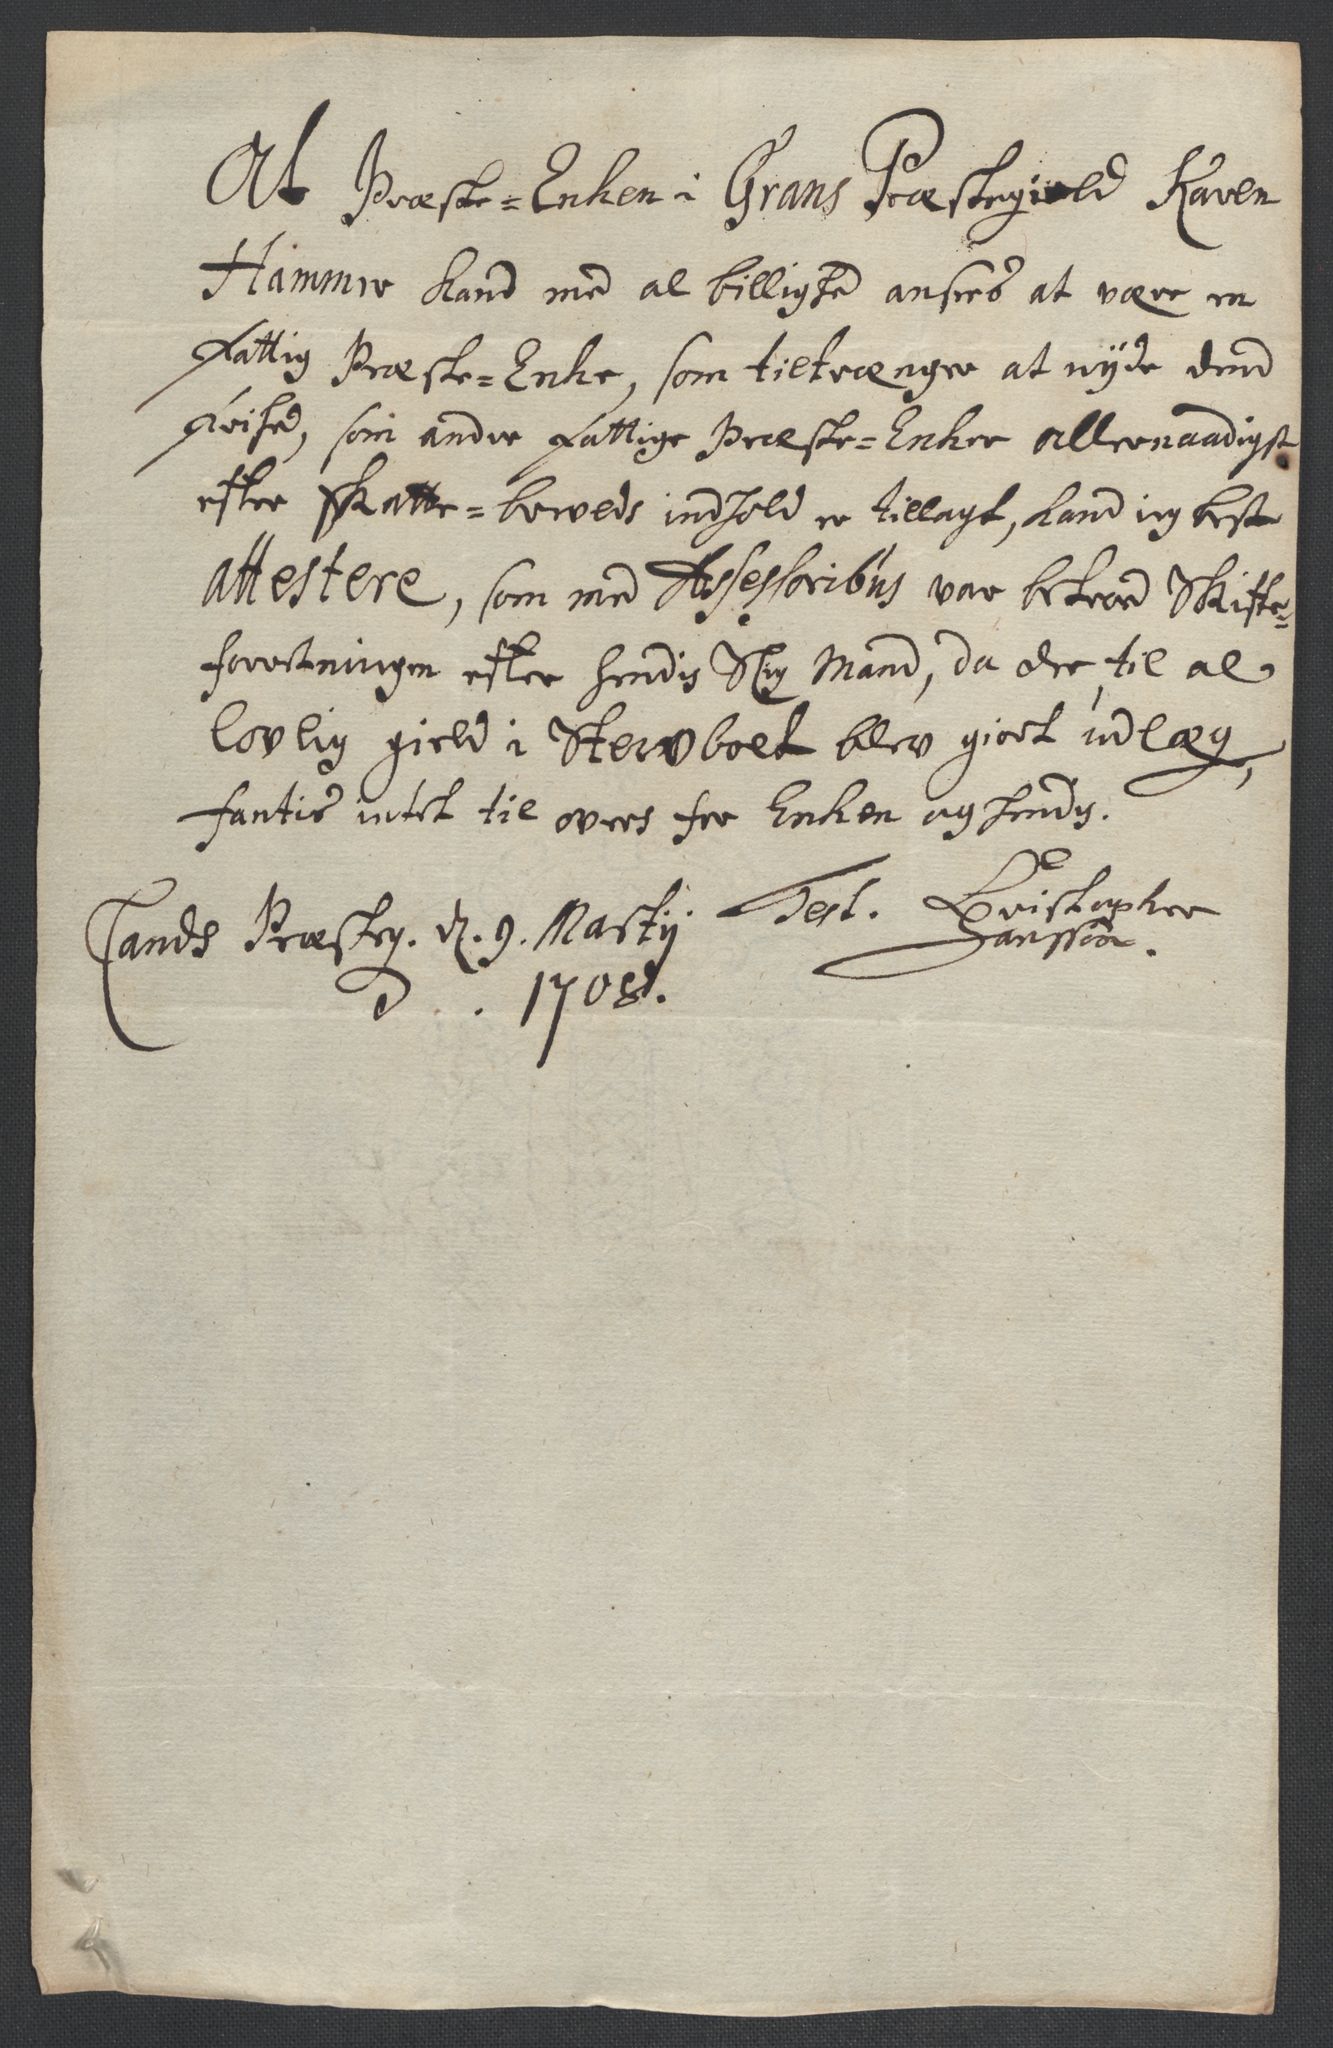 At Præste-Enken i Grans Præstegield Karen
Hammer kand med al billighed ansees at være en
fattig Præste-Enke, som tiltrænger at nyde dend
frihed, som andre fattige Præste-Enker allernaadigst
efter Skatte-brevets indhold er tillagt, kand ieg best
attestere, som med Assessoribus var betroed Skifte-
forretningen efter hendis Slig Mand, da der til al
lovlig gield i Stervboet blev giort udlæg,
fantis intet til overs for Enken og hendis.
Lands Præsteg. d. 9. Martij Test. Christopher
Hanssøn.
A. 1708.